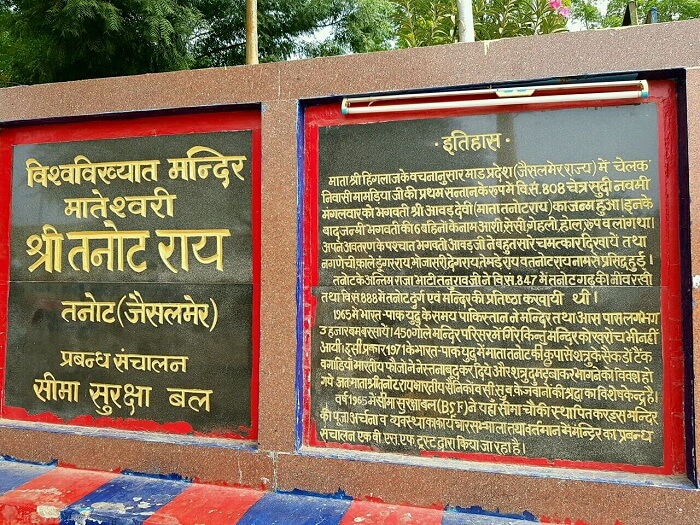 विश्वविख्यात मन्दिर
मातेश्वरी
श्री तनोट राय
तनोट (जैसलमेर)
प्रबन्ध संचालन
सीमा सुरक्षा बल
· इतिहास ·
माता श्री हिंगलाज के वचनानुसार माड प्रदेश (जैसलमेर राज्य) में चेलक
निवासी मामडिया जी की प्रथम सन्तान के रूप मे वि.सं. 808 चेत्र सुदी नवमी
मंगलवार को भगवती श्री आवड देवी (माता तनोट राय) का जन्म हुआ। इनके
बाद जन्मी भगवती की 6 बहिनो के नाम आशी, सेसी, गेहली, होल, रूप व लांग था।
अपने अवतरण के पश्चात भगवती आवड जी ने बहुत सारे चमत्कार दिखाये तथा
नगणेची, काले डूंगर राय, भोजासरी, देग राय, तेमडे राय व तनोट राय नाम से प्रसिद्ध हुई।
तनोट के अन्तिम राजा भाटी तनुराव जी ने वि.सं. 847 में तनोट गढ की नींव रखी
तथा वि.सं. 888 में तनोट दुर्ग एवं मन्दिर की प्रतिष्ठा करवायी थी।
1965 में भारत-पाक युद्ध के समय पाकिस्तान ने मन्दिर तथा आस पास लगभग
3 हजार बम बरसाये। 450 गोले मन्दिर परिसर में गिरे किन्तु मन्दिर को खरोंच भी नहीं
आयी। इसी प्रकार 1971 के भारत-पाक युद्ध में माता तनोट की कृपा से शत्रु के सेकडों टैंक
व गाडियां भारतीय फौजों ने नेस्तनाबूद कर दिये और शत्रु दुम दबाकर भागने को विवश हो
गये अतः माता श्री तनोट राय भारतीय सैनिकों व सी.सु.ब. के जवानों की श्रद्धा का विशेष केन्द्र है।
वर्ष 1965 में सीमा सुरक्षा बल (BSF) ने यहाँ सीमा चौकी स्थापित कर इस मन्दिर
की पूजा अर्चना व व्यवस्था का कार्यभार सम्भाला तथा वर्तमान में मन्दिर का प्रबन्ध
संचालन एक बी.एस.एफ. ट्रस्ट द्वारा किया जा रहा है।